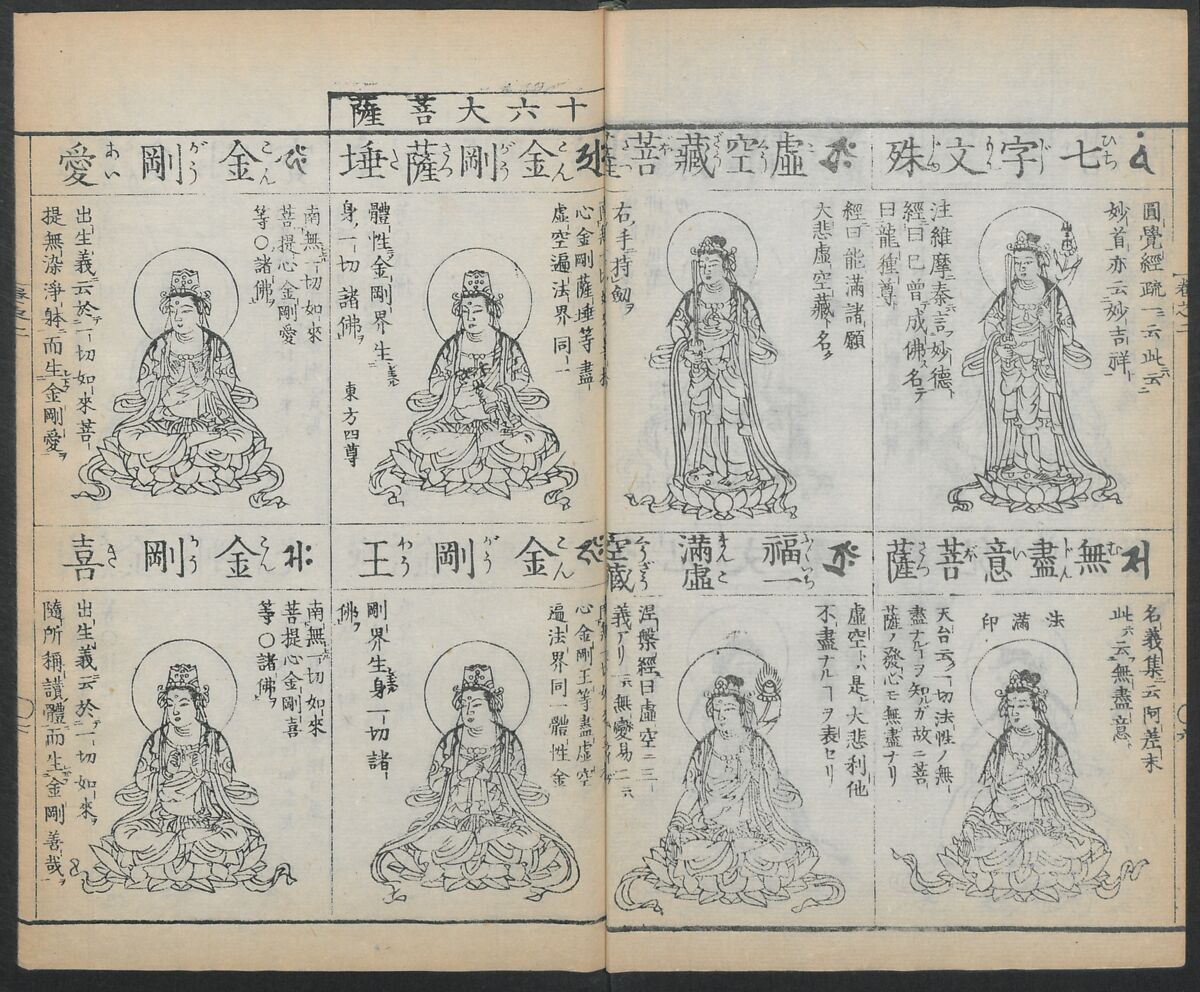 七字文殊
圓覺經疏ニ云此云ニ
妙首亦云妙吉祥
注維摩秦言妙德
經曰已曾成佛名テ
曰龍種尊
虛空藏菩薩
經曰能滿諸願
大悲虛空藏ト名ク
右ノ手持劔ヲ
無盡意菩薩
名義集云阿差末
此ニハ云無盡意
法滿印
天台云一切法性ノ無
盡ナルヿヲ知ルガ故ニ菩
薩ノ發心モ無盡ナリ
福一滿虛空藏
虛空トハ是大悲利他
不盡ナルヿヲ表セリ
涅槃經曰虛空ニ三
義アリ一ニハ無變易二ニハ
十六大菩薩
金剛薩埵
心金剛薩埵等盡
虛空遍法界同一
體性金剛界生
身一切諸佛
東方四尊
金剛王
心金剛王等盡虛空
遍法界同一體性金
剛界生身一切諸
佛
金剛愛
南無一切如來
菩提心金剛愛
等〇諸佛
出生義云於一切如來菩
提無染淨躰而生金剛愛
金剛喜
南無一切如來
菩提心金剛喜
等〇諸佛
出生義云於一切如來
隨所稱讚體而生金剛善哉